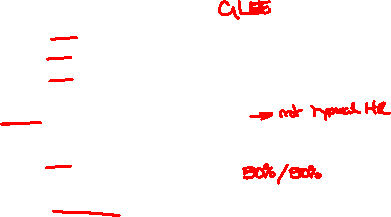 GLEE
→ not typical HR
50%/50%